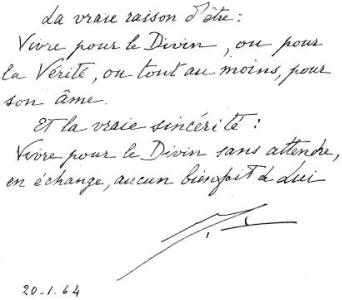 La vraie raison d'être:
Vivre pour le Divin, ou pour
la Vérité, ou tout au moins, pour
son âme.
Et la vraie sincérité:
Vivre pour le Divin sans attendre,
en échange, aucun bienfait de Lui
20-1-64